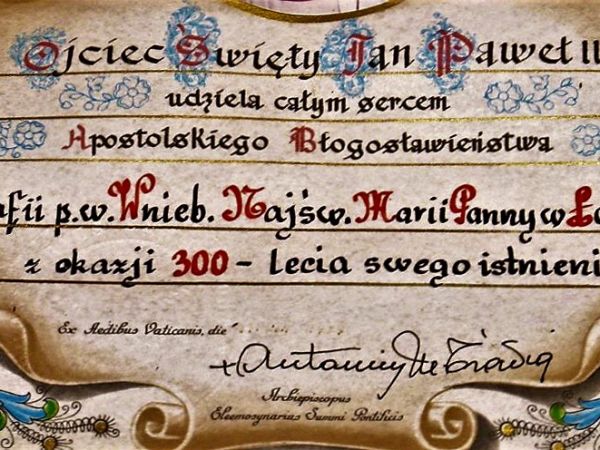 Ojciec Święty Jan Paweł II
udziela całym sercem
Apostolskiego Błogosławieństwa
afii p.w. Wnieb. Najśw. Marii Panny w Ł
z okazji 300-lecia swego istnieni
Ex Aedibus Vaticanis, die
Archiepiscopus
Eleemosynarius Summi Pontificis